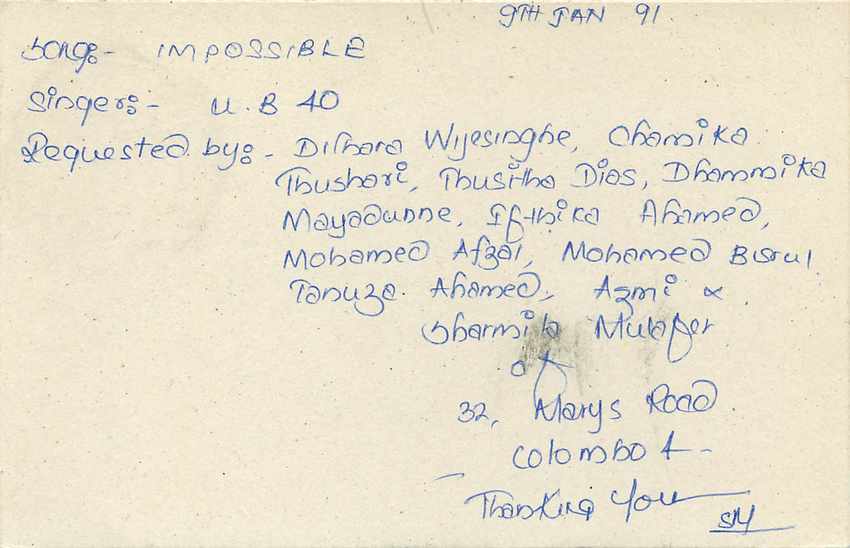 9TH JAN 91
Song:- IMPOSSIBLE
Singer:- U.B 40
Requested by:- Dilhara Wijesinghe, Chamika
Thushari, Thusitha Dias, Dhammika
Mayadunne, Ifthika Ahamed,
Mohamed Afzal, Mohamed Bisrul
Tanuza Ahamed, Azmi &
Sharmila Mulafer
of
32, Marys Road
Colombo 4-
Thanking You
SM